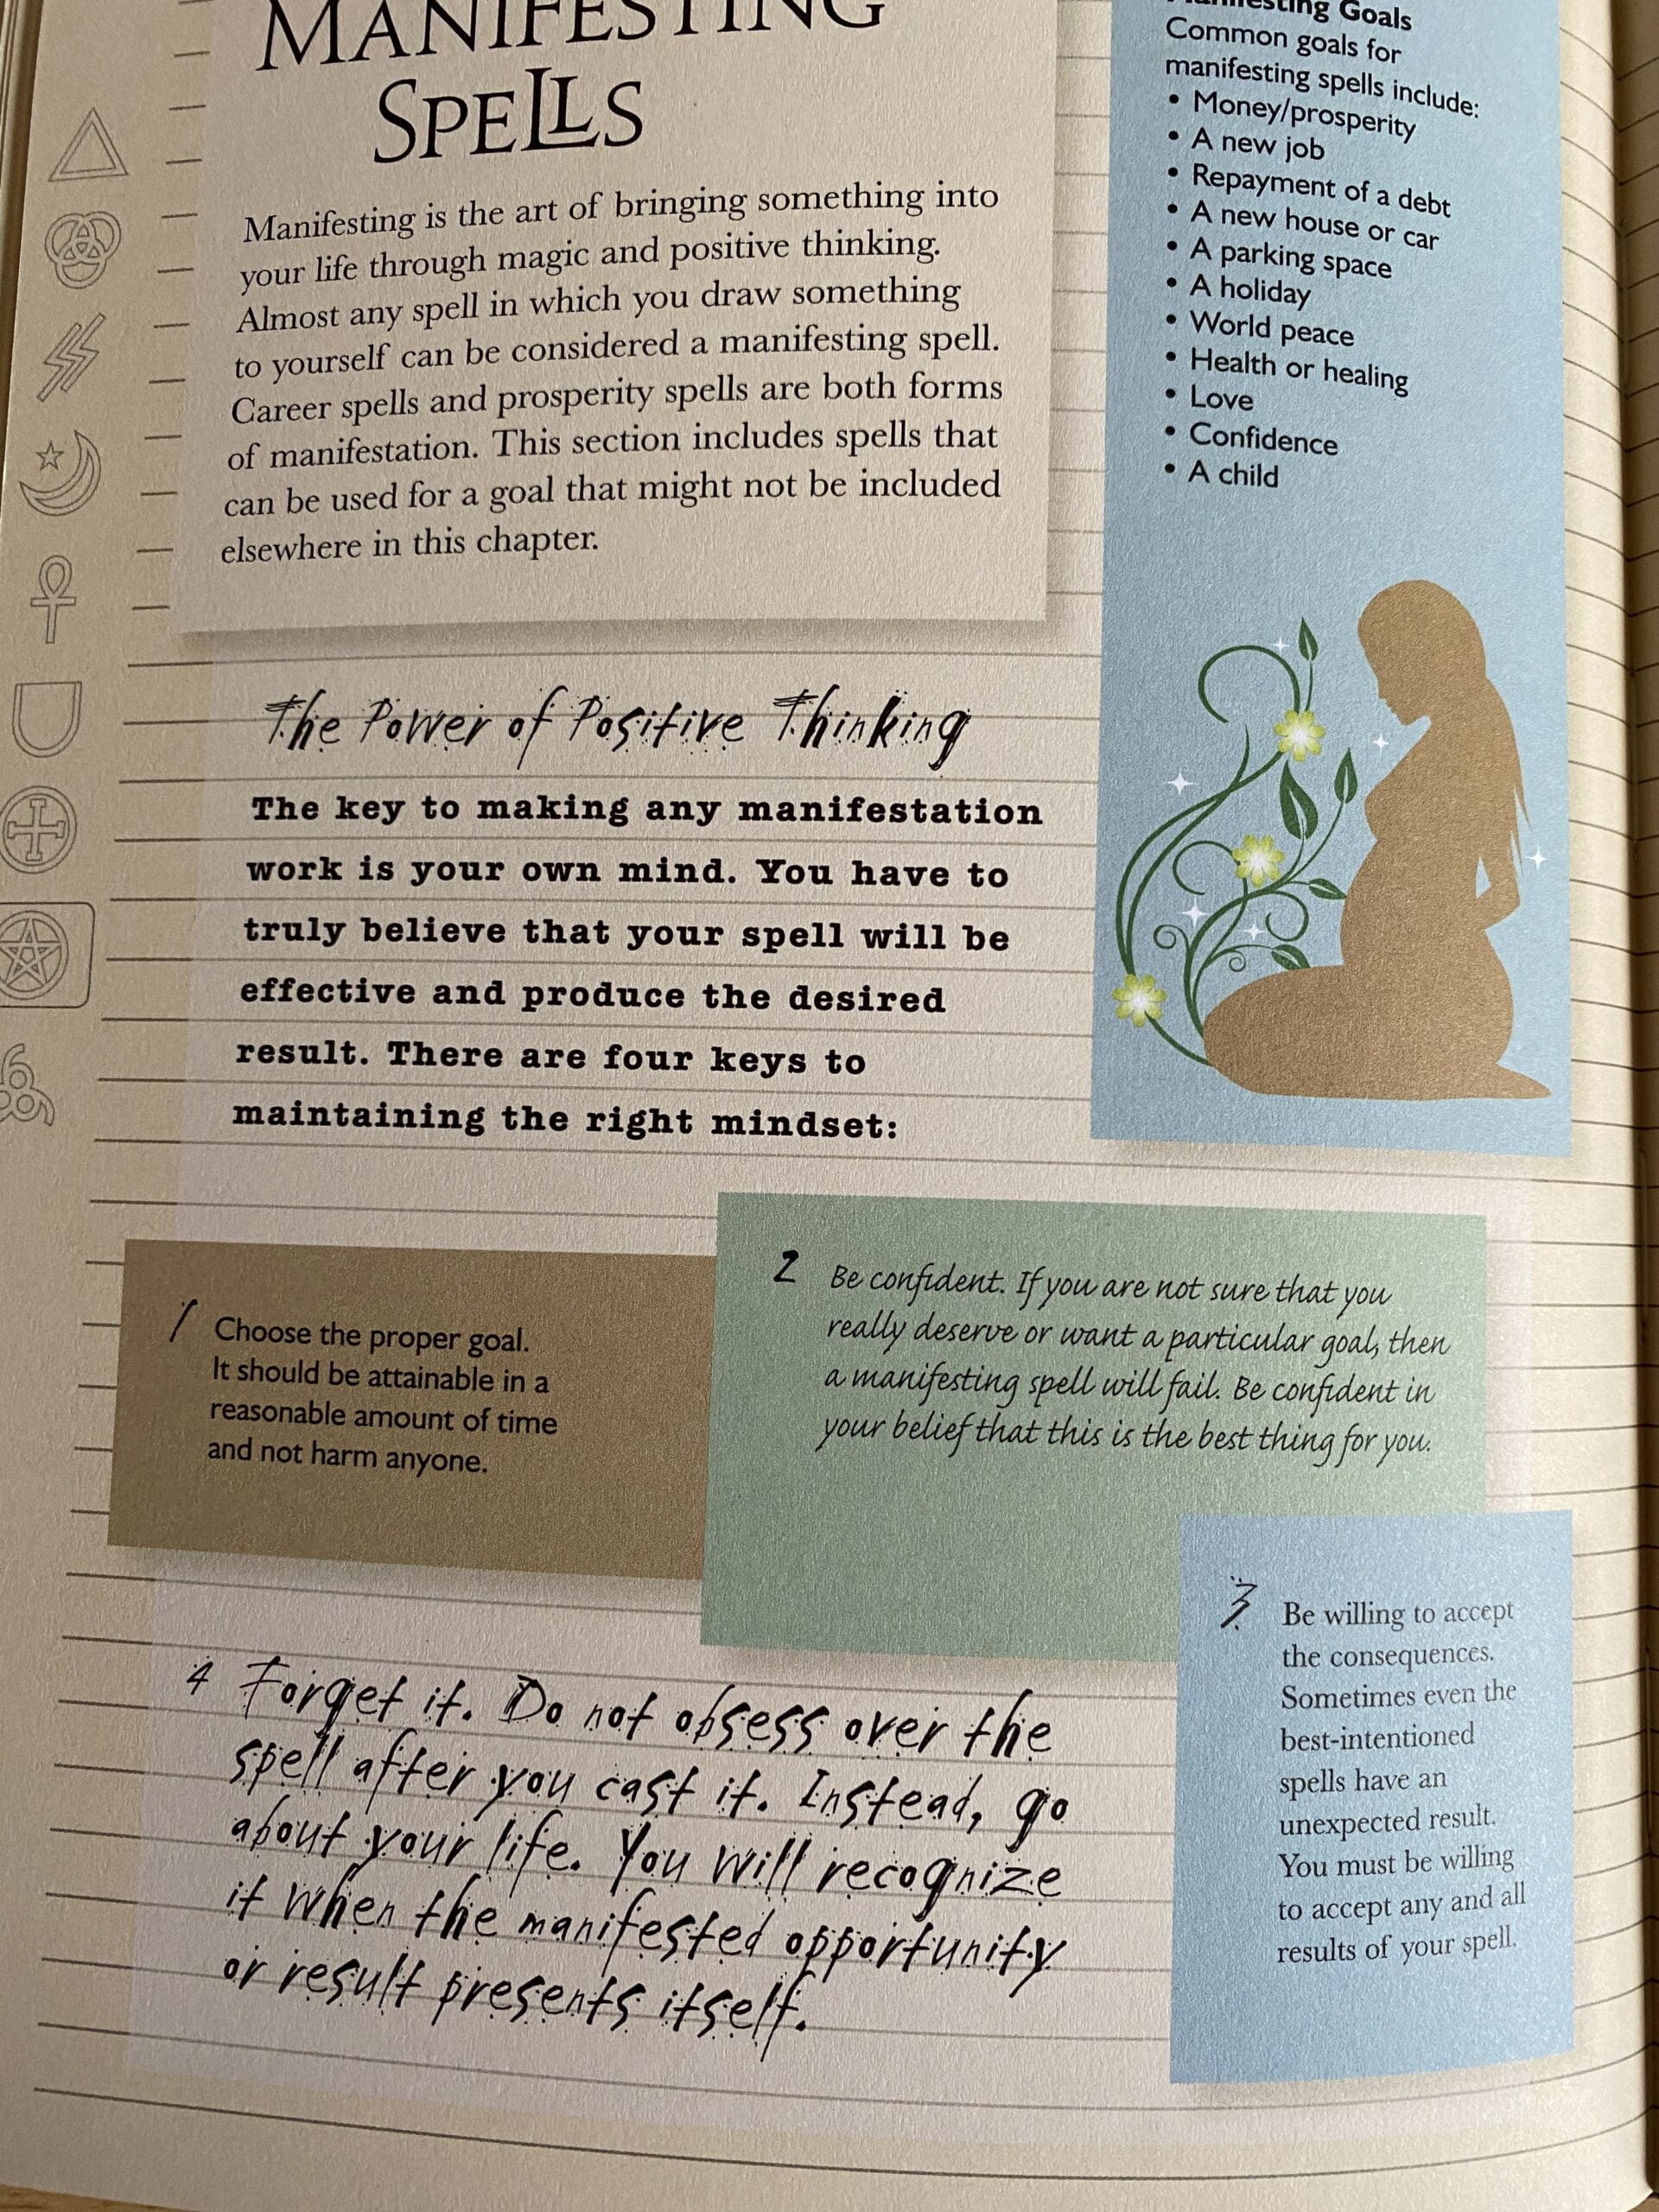 MANIFESTING
SPELLS
Manifesting is the art of bringing something into
your life through magic and positive thinking.
Almost any spell in which you draw something
to yourself can be considered a manifesting spell.
Career spells and prosperity spells are both forms
of manifestation. This section includes spells that
can be used for a goal that might not be included
elsewhere in this chapter.
Manifesting Goals
Common goals for
manifesting spells include:
• Money/prosperity
• A new job
• Repayment of a debt
• A new house or car
• A parking space
• A holiday
• World peace
• Health or healing
• Love
• Confidence
• A child
The Power of Positive Thinking
The key to making any manifestation
work is your own mind. You have to
truly believe that your spell will be
effective and produce the desired
result. There are four keys to
maintaining the right mindset:
1 Choose the proper goal.
It should be attainable in a
reasonable amount of time
and not harm anyone.
2 Be confident. If you are not sure that you
really deserve or want a particular goal, then
a manifesting spell will fail. Be confident in
your belief that this is the best thing for you.
3 Be willing to accept
the consequences.
Sometimes even the
best-intentioned
spells have an
unexpected result.
You must be willing
to accept any and all
results of your spell.
4 Forget it. Do not obsess over the
spell after you cast it. Instead, go
about your life. You will recognize
it when the manifested opportunity
or result presents itself.